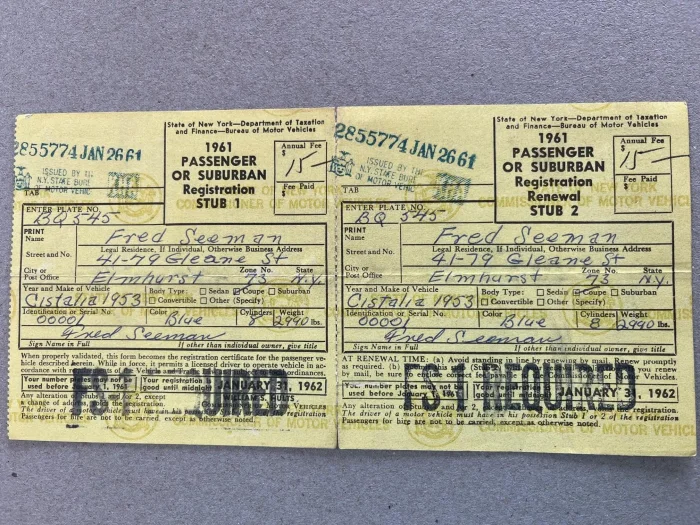 State of New York—Department of Taxation
and Finance—Bureau of Motor Vehicles
2855774 JAN 26 61
1961
PASSENGER
OR SUBURBAN
Registration
STUB 1
Annual Fee
$ 15—
Fee Paid
$
ISSUED BY THE
N.Y. STATE BUR
OF MOTOR VEHIC
TAB
ENTER PLATE NO.
BQ 545
PRINT
Name Fred Seeman
Legal Residence, If Individual, Otherwise Business Address
Street and No. 41-79 Gleane St
City or Post Office Elmhurst Zone No. 73 State N.Y.
Year and Make of Vehicle Cistalia 1953
Body Type: Sedan Coupe Suburban
Convertible Other (Specify)
Identification or Serial No. 00001 Color Blue Cylinders 8 Weight 2990 lbs.
Fred Seeman
Sign Name in Full If other than individual owner, give title
When properly validated, this form becomes the registration certificate for the passenger ve-
hicle described herein. While in force, it permits a licensed driver to operate vehicle in ac-
cordance with
Your number
used before 1, 1961
Your registration is
good until midnight JANUARY 31, 1962
WILLIAM S. HULTS
Any alteration of Stub 1 or 2, except
a change of add the registration.
The driver of a motor vehicle must have in his REGISTRATION
Passengers for hire are not to be carried, except as otherwise noted.
FS-1 REQUIRED
State of New York—Department of Taxation
and Finance—Bureau of Motor Vehicles
2855774 JAN 26 61
1961
PASSENGER
OR SUBURBAN
Registration
Renewal
STUB 2
Annual Fee
$ 15—
Fee Paid
$
ISSUED BY THE
N.Y. STATE BUR
OF MOTOR VEHIC
TAB
ENTER PLATE NO.
BQ 545
PRINT
Name Fred Seeman
Legal Residence, If Individual, Otherwise Business Address
Street and No. 41-79 Gleane St
City or Post Office Elmhurst Zone No. 73 State N.Y.
Year and Make of Vehicle Cistalia 1953
Body Type: Sedan Coupe Suburban
Convertible Other (Specify)
Identification or Serial No. 00001 Color Blue Cylinders 8 Weight 2990 lbs.
Fred Seeman
Sign Name in Full If other than individual owner, give title
AT RENEWAL TIME: (a) Avoid standing in line by renewing by mail. Renew promptly
as required. (b)
by mail, be sure to
Your number plates must not be
used before January 1, 1961
JANUARY 31, 1962
Any alteration of Stub 1 or 2, except a change of address, voids the registration.
The driver of a motor vehicle must have in his possession Stub 1 or 2 of the registration
Passengers for hire are not to be carried, except as otherwise noted.
FS-1 REQUIRED
COMMISSIONER OF MOTOR VEHICLES